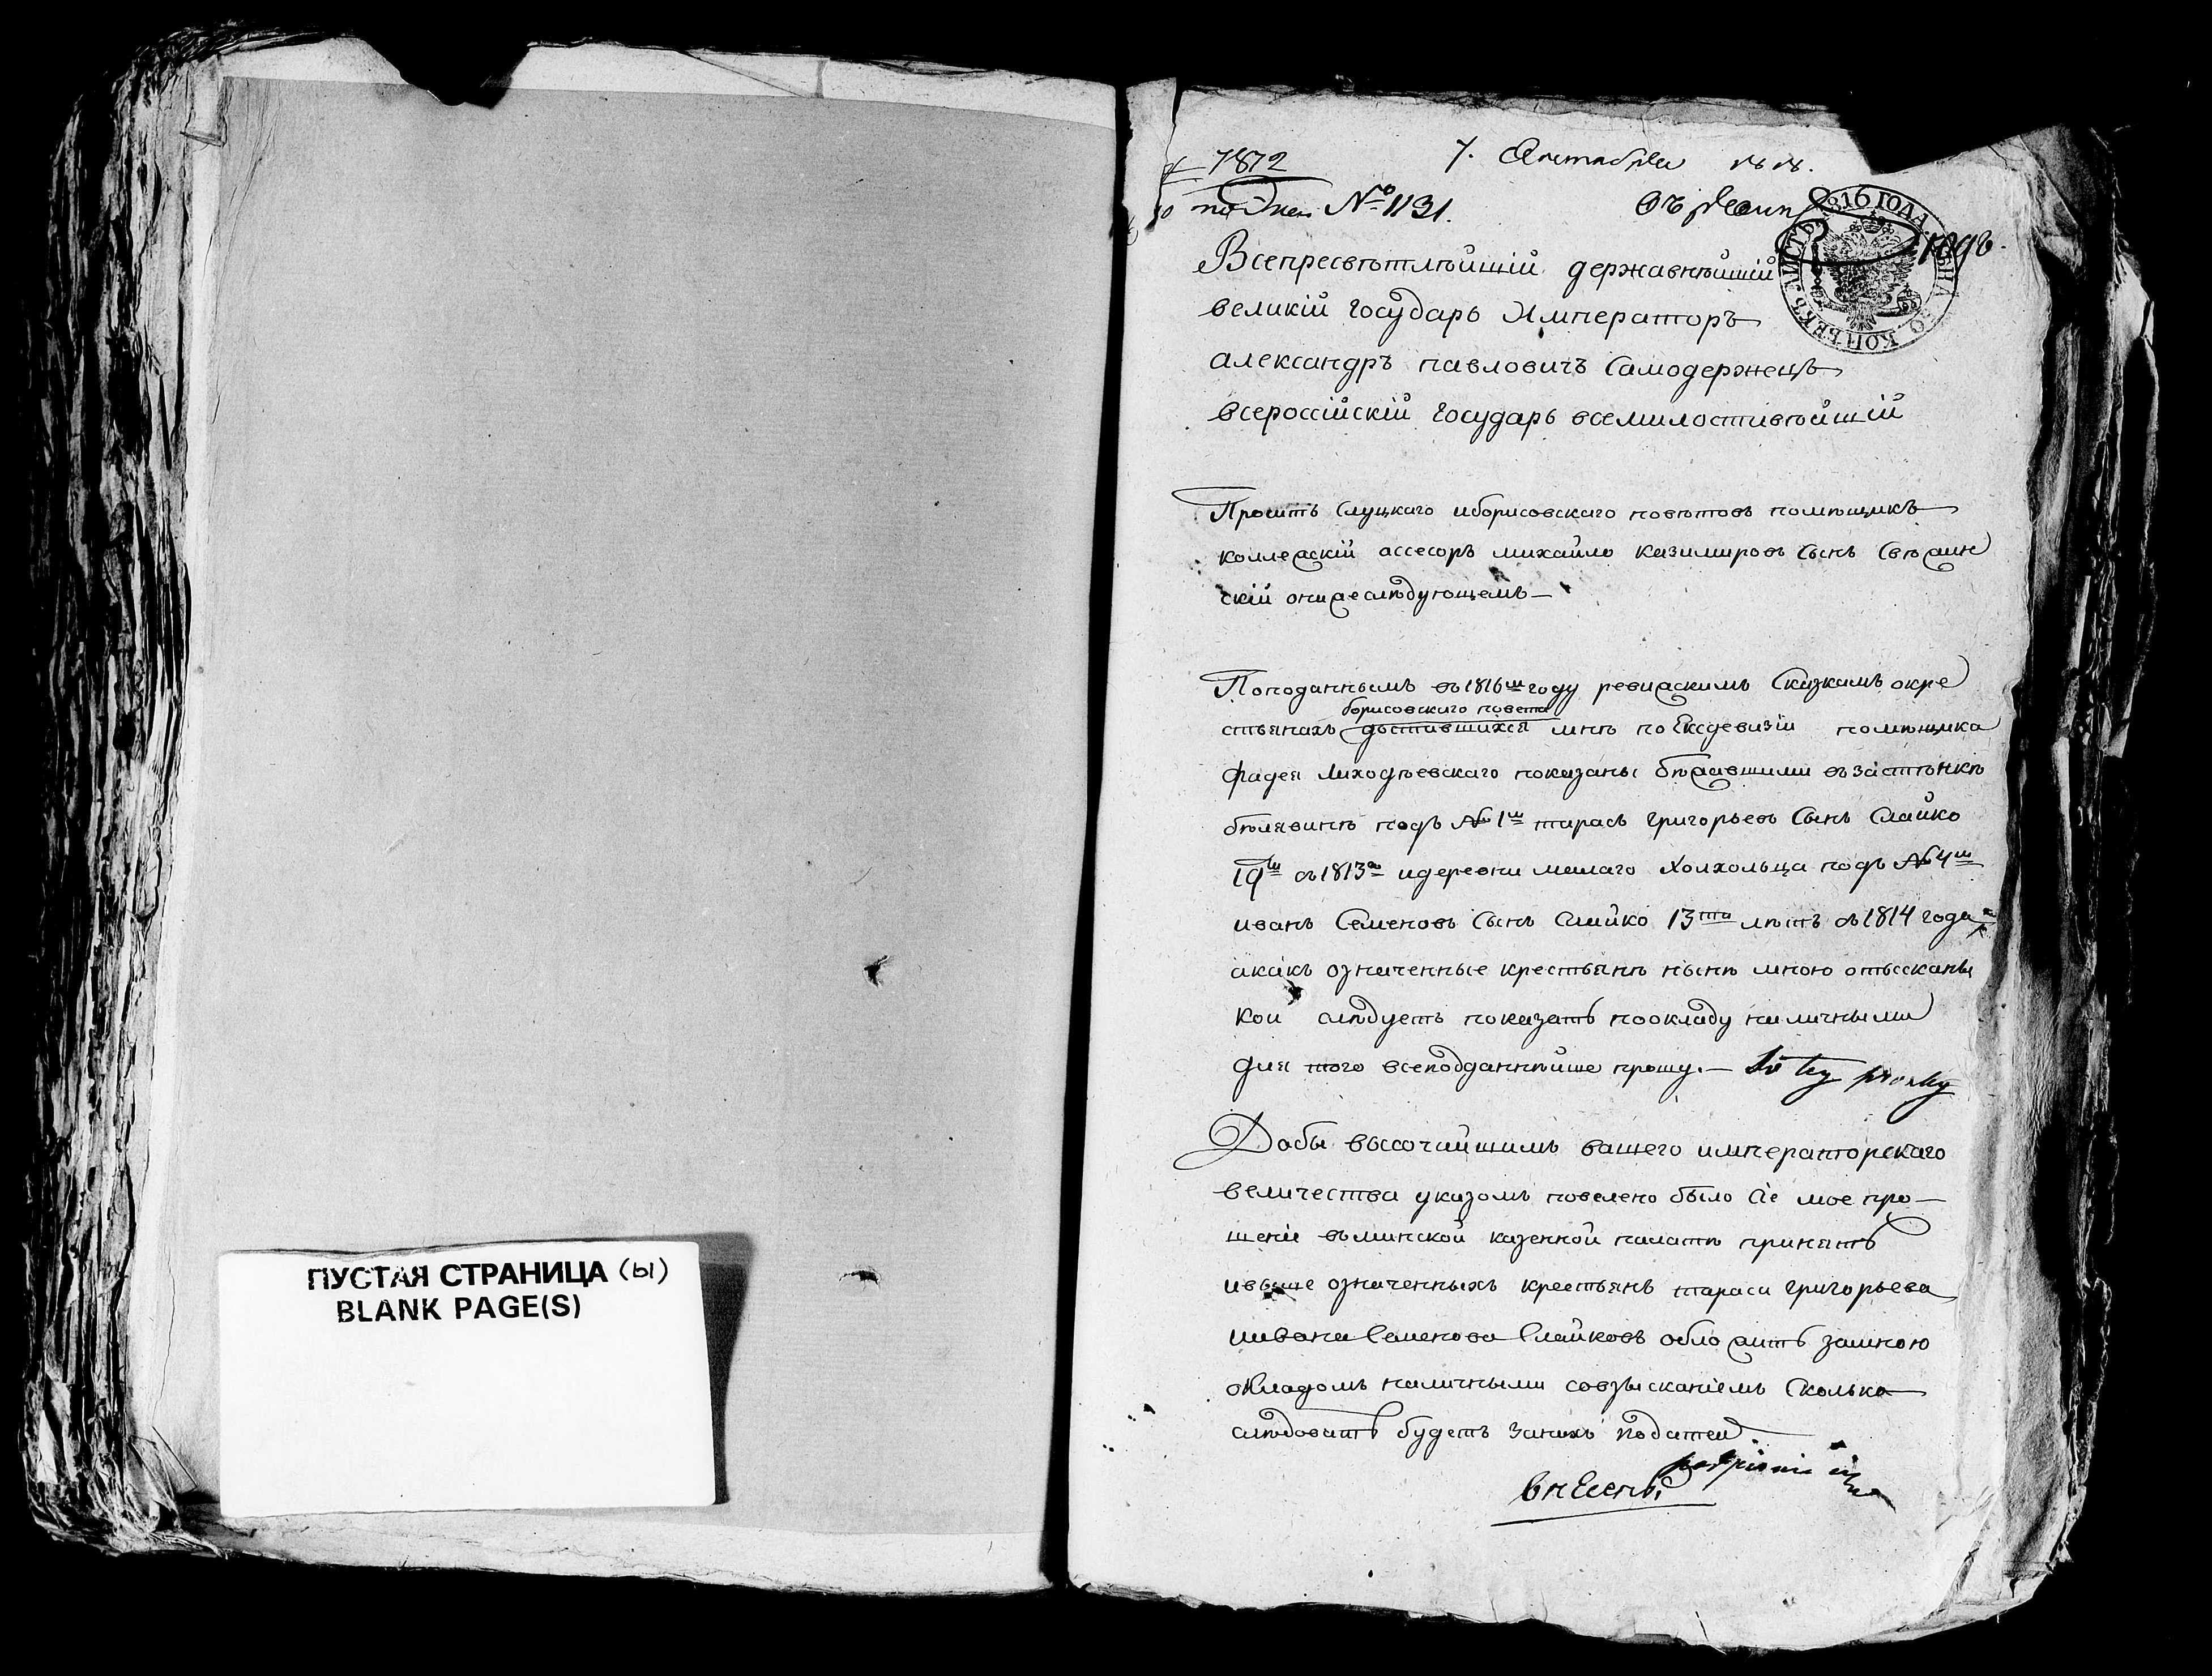 ПУСТАЯ СТРАНИЦА (ы)
BLANK PAGE(S)
7872
7. Октября
№ 1131.
Всепресвѣтлѣйшій державнѣйшій
великій государь Императоръ
александръ павловичъ Самодержецъ
всероссійскій государь всемилостивѣйшій
Просить Слуцкаго иборисовскаго повѣтовъ помѣщикъ
коллежскій ассесоръ михайло казимировъ Сынъ Свѣжин
скій онижеслѣдующемъ —
Поподаннымъ въ 1816м году ревижскимъ Сказкамъ окре
борисовскаго повета
стьянахъ доставшихся мнѣ по Ексдевизіи помѣщика
фадея Лиходѣевскаго показаны бѣжавшими въ застѣнкѣ
бѣлявинѣ подъ № 1м тарасъ григорьевъ Сынъ Слайко
19ти съ 1813го идеревни малаго Холхольца подъ № 4м
иванъ Семеновъ Сынъ Слайко 13ти лѣтъ съ 1814 года
акакъ означенные крестьянѣ нынѣ мною отысканы
кои слѣдуетъ показать поокладу наличными
для того всеподданнѣйше прошу. —
Дабы высочайшимъ вашего императорскаго
величества указомъ повелено было Сіе мое про—
шеніе въминской казенной палатѣ принять
ивыше означенныхъ крестьянъ тараса григорьева
иивана Семенова Слайковъ обложить замною
окладомъ наличными совзысканіемъ Сколько
слѣдовать будетъ занихъ податей